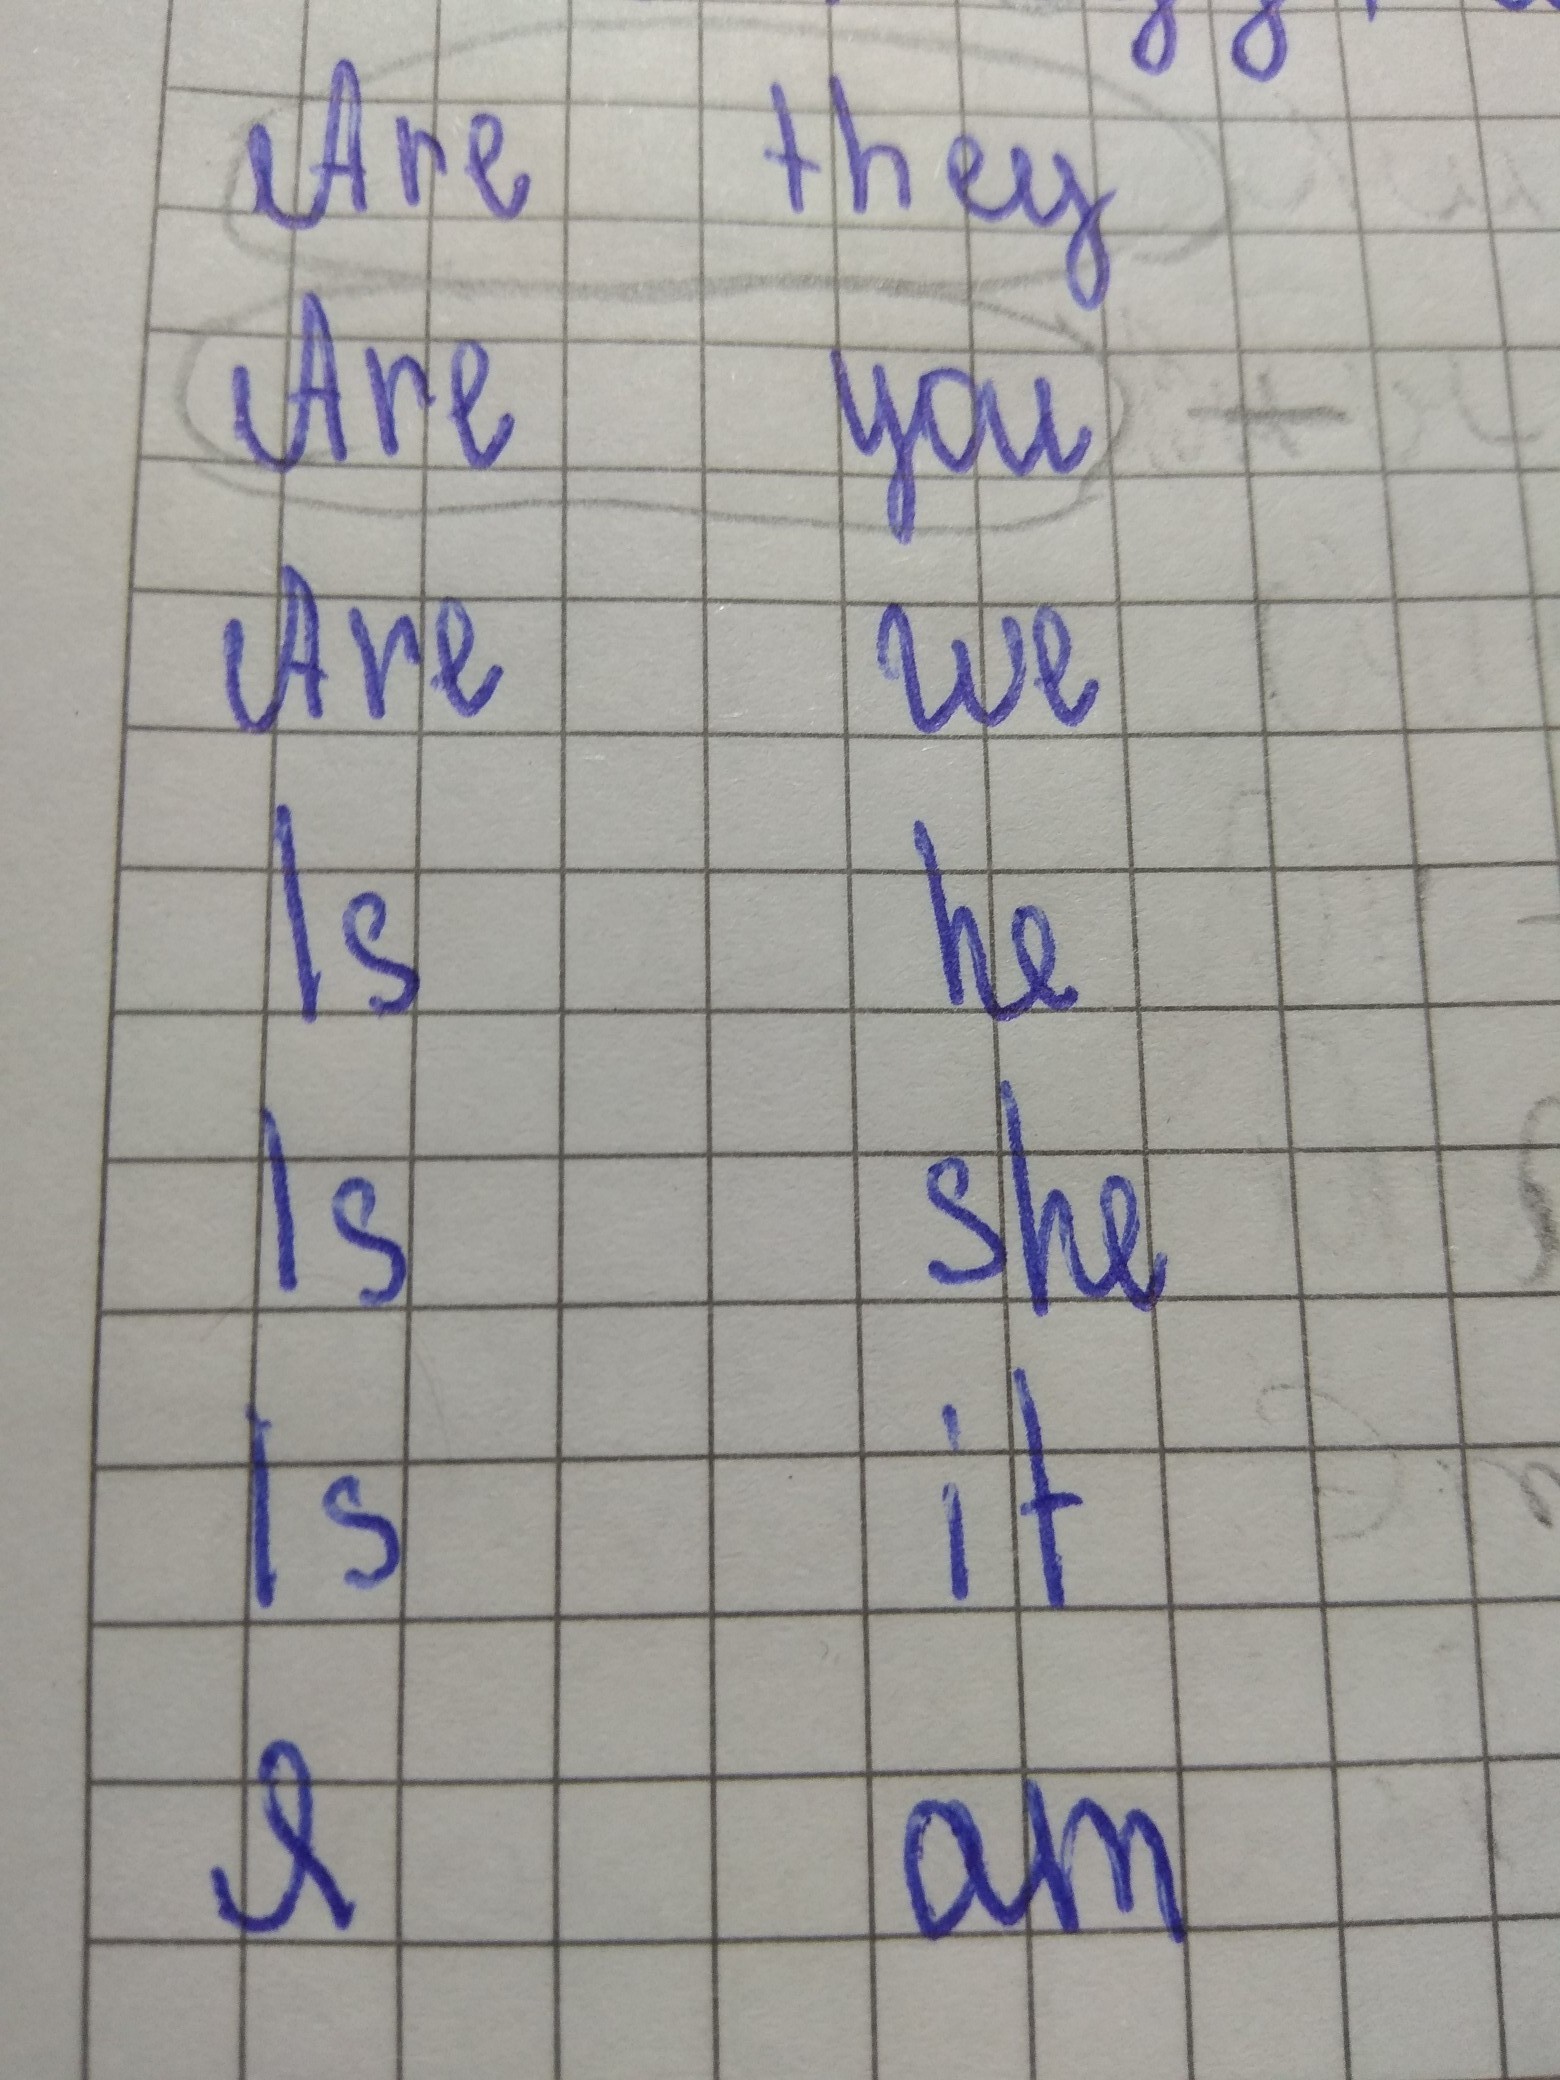 Are they
Are you +
Are we
Is he
Is she
Is it
I am